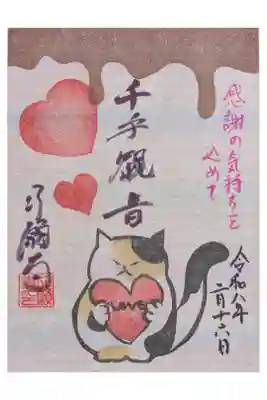 感謝の気持ちを
込めて
千手観音
Love
令和八年
二月十六日